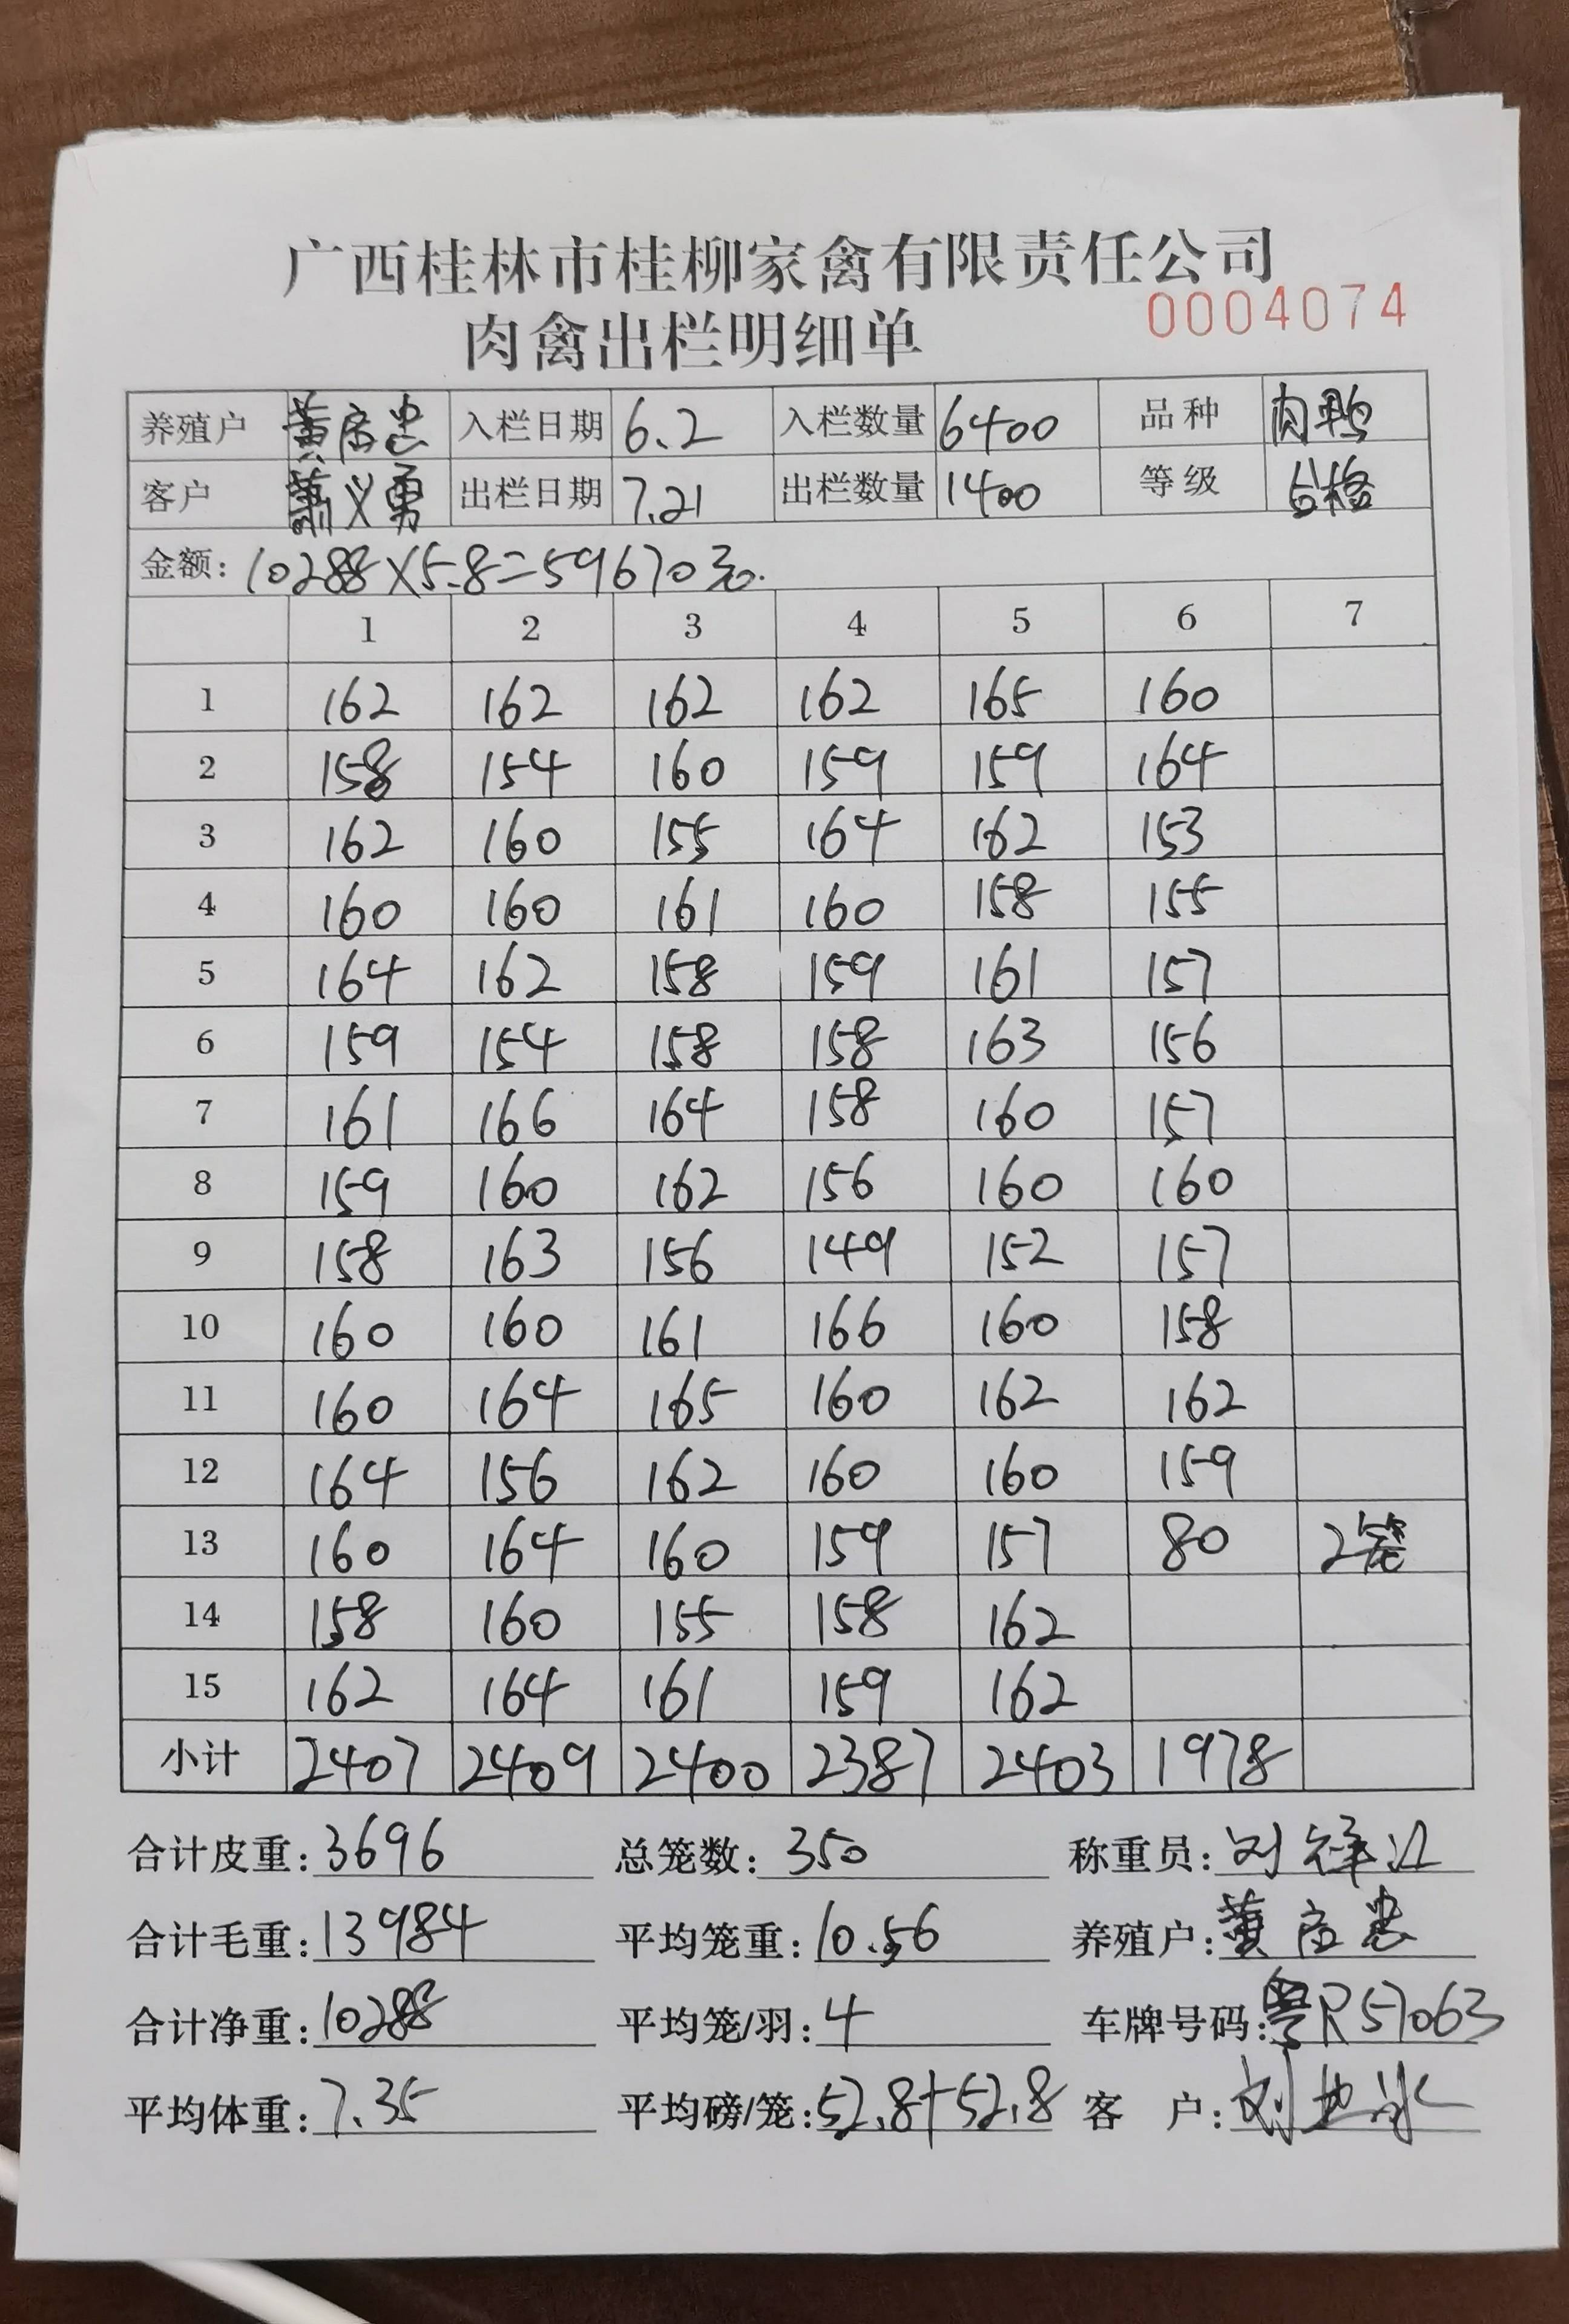 广西桂林市桂柳家禽有限责任公司
肉禽出栏明细单 0004074
养殖户 黄启忠 入栏日期 6.2 入栏数量 6400 品种 肉鸭
客户 萧义勇 出栏日期 7.21 出栏数量 1400 等级 合格
金额: 10288×5.8=59670元.
1 2 3 4 5 6 7
1 162 162 162 162 165 160
2 158 154 160 159 159 164
3 162 160 155 164 162 153
4 160 160 161 160 158 155
5 164 162 158 159 161 157
6 159 154 158 158 163 156
7 161 166 164 158 160 157
8 159 160 162 156 160 160
9 158 163 156 149 152 157
10 160 160 161 166 160 158
11 160 164 165 160 162 162
12 164 156 162 160 160 159
13 160 164 160 159 157 80 2笼
14 158 160 155 158 162
15 162 164 161 159 162
小计 2407 2409 2400 2387 2403 1978
合计皮重: 3696 总笼数: 350 称重员: 刘
合计毛重: 13984 平均笼重: 10.56 养殖户: 黄启忠
合计净重: 10288 平均笼/羽: 4 车牌号码: 粤R57063
平均体重: 7.35 平均磅/笼: 52.8+52.8 客 户: 刘